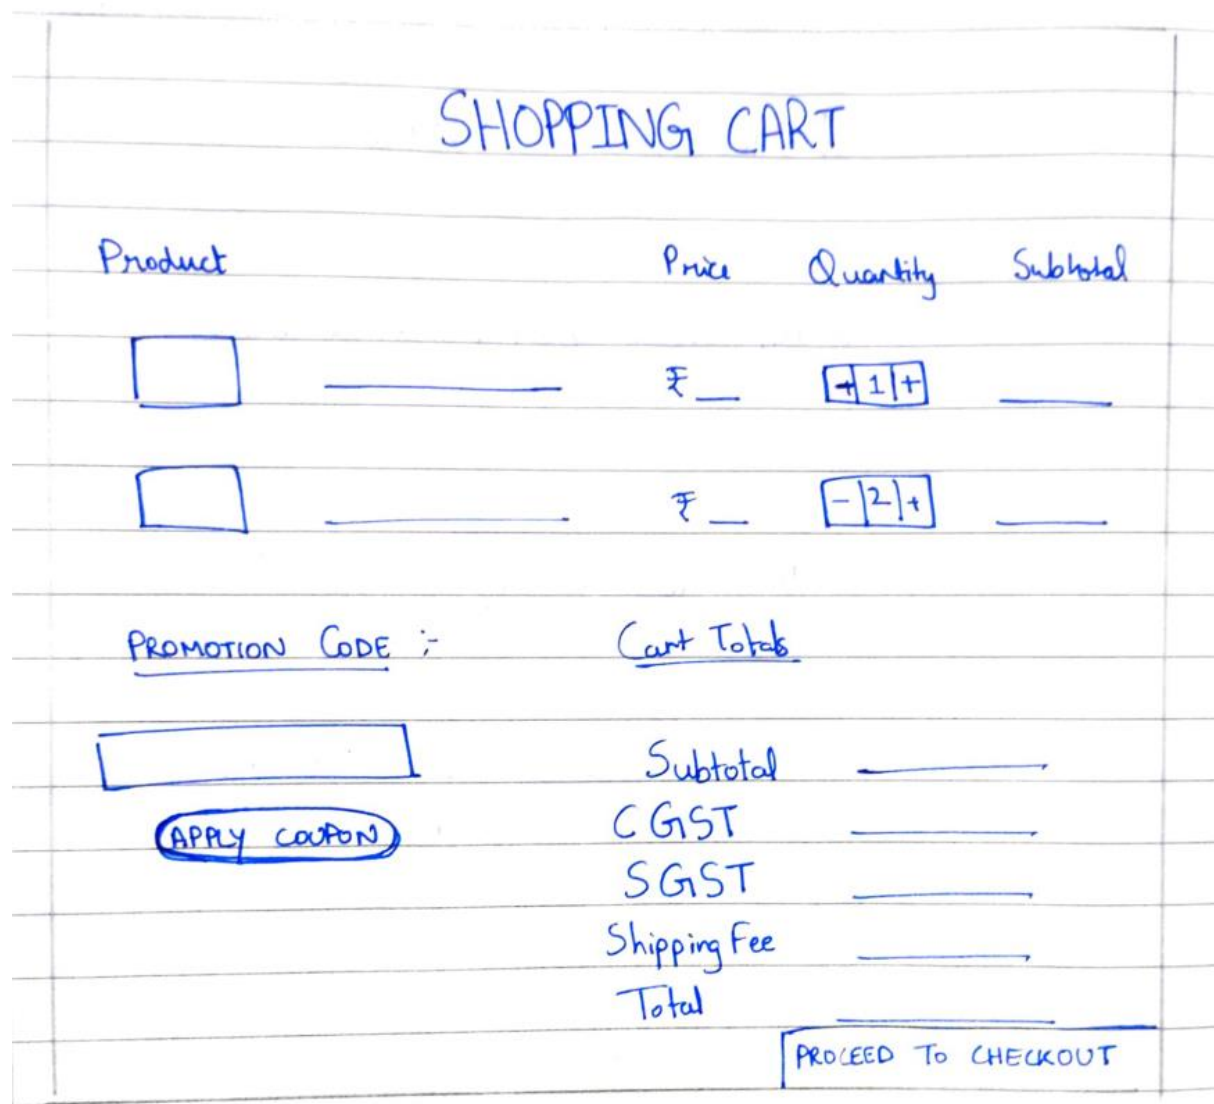 SHOPPING CART
Product Price Quantity Subtotal
₹ __ - 1 + 
₹ __ - 2 +
PROMOTION CODE :- Cart Totals
Subtotal
APPLY COUPON CGST
SGST
Shipping Fee
Total
PROCEED TO CHECKOUT